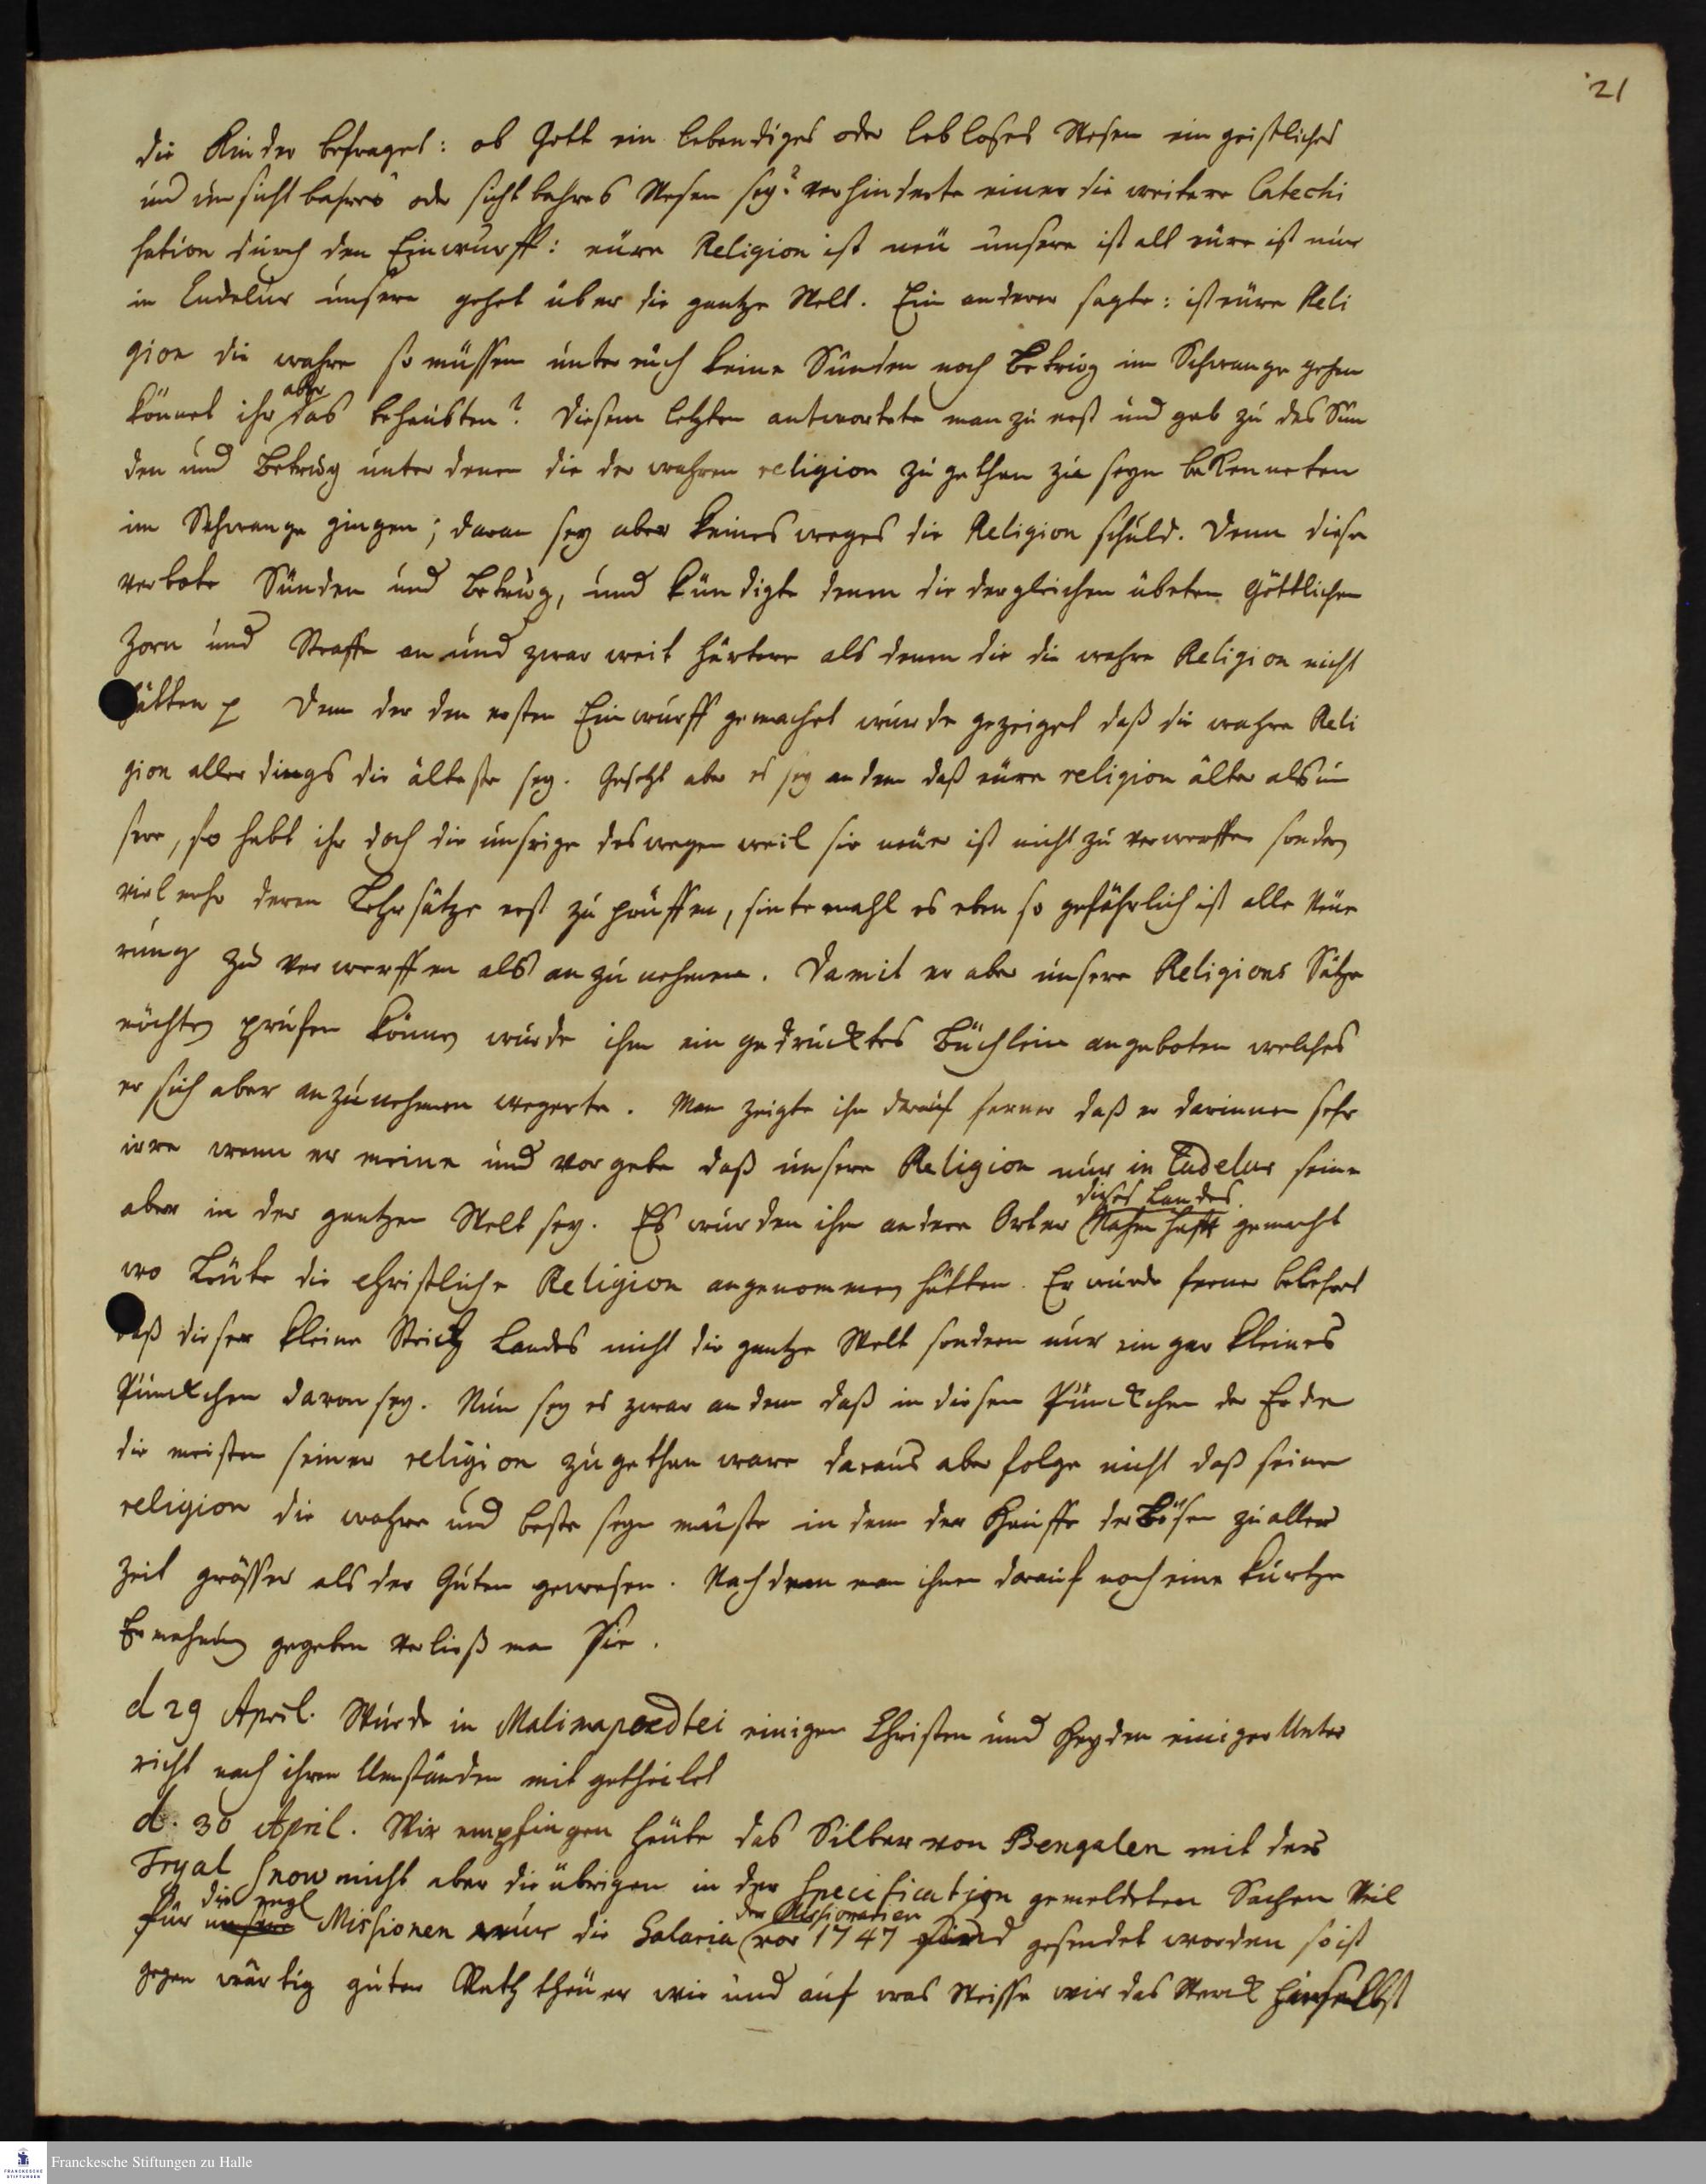 21
die Kinder befraget: ob Gott ein lebendiges oder lebloses Wesen ein geistliches
und unsichtbahres oder sichtbahres Wesen sey? verhinderte einer die weitere Catechi
sation durch den Einwurff: eüre Religion ist neü unsere ist alt eüre ist nur
in Cudelur unsere gehet über die gantze Welt. Ein anderer sagte: ist eüre Reli
gion die wahre so müssen unter eüch keine Sünden noch Betrug im Schwange gehen
könnet ihr aber das behaubten? Diesem letzten antwortete man zu erst und gab zu das Sün
den und Betrug unter denen die der wahren religion zugethan zu seyn bekenneten
im Schwange gingen; daran sey aber keines weges die Religion schuld. Denn diese
verbote Sünden und Betrug, und kündigte denen die dergleichen übeten Göttlichen
Zorn und Straffe an und zwar weit härtere als denen die die wahre Religion nicht
hätten p Dem der den ersten Einwurff gemachet wurde gezeiget daß die wahre Reli
gion aller dings die älteste sey. Gesetzt aber es sey an dem daß eüre religion älter als un
sere, so habt ihr doch die unsrige deswegen weil sie neüer ist nicht zu verwerffen sondern
viel mehr deren Lehrsätze erst zu prüffen, sintemahl es eben so gefährlich ist alle Neüe
rung zu verwerffen als anzunehmen. Damit er aber unsere Religions Sätze
möchte prüfen können wurde ihm ein gedrucktes Büchlein angeboten welches
er sich aber anzunehmen wegerte. Man zeigte ihm darauf ferner daß er darinnen sehr
irre wenn er meine und vorgebe daß unsere Religion nur in Cudelur seine
aber in der gantzen Welt sey. Es wurden ihm andere Orter dieses Landes Nahmhafft gemacht
wo Leüte die christliche Religion angenommen hätten. Er wurde ferner belehret
daß dieser kleine Strich Landes nicht die gantze Welt sondern nur ein gar kleines
Pünckchen davon sey. Nun sey es zwar an dem daß in diesem Pünckchen der Erden
die meisten seiner religion zugethan ware daraus aber folge nicht daß seine
religion die wahre und beste seyn müste in dem der Hauffe der Bösen zu aller
Zeit grösser als der Guten gewesen. Nach dem man ihnen darauf noch eine kurtze
Ermahnung gegeben verließ man Sie.
d 29 April. Wurde in Malimapoedtei einigen Christen und Heyden einiger Unter
richt nach ihren Umständen mit getheilet
d. 30 April. Wir empfingen heüte das Silber von Bengalen mit der
Tryal Snow nicht aber die übrigen in der Specification gemeldeten Sachen Weil
für die engl unsere Missionen nur die Salaria der Missionarien vor 1747 sind gesendet worden so ist
gegen wärtig guter Rath theüer wie und auf was Weisse wir das Werck hinselbst
Franckesche Stiftungen zu Halle